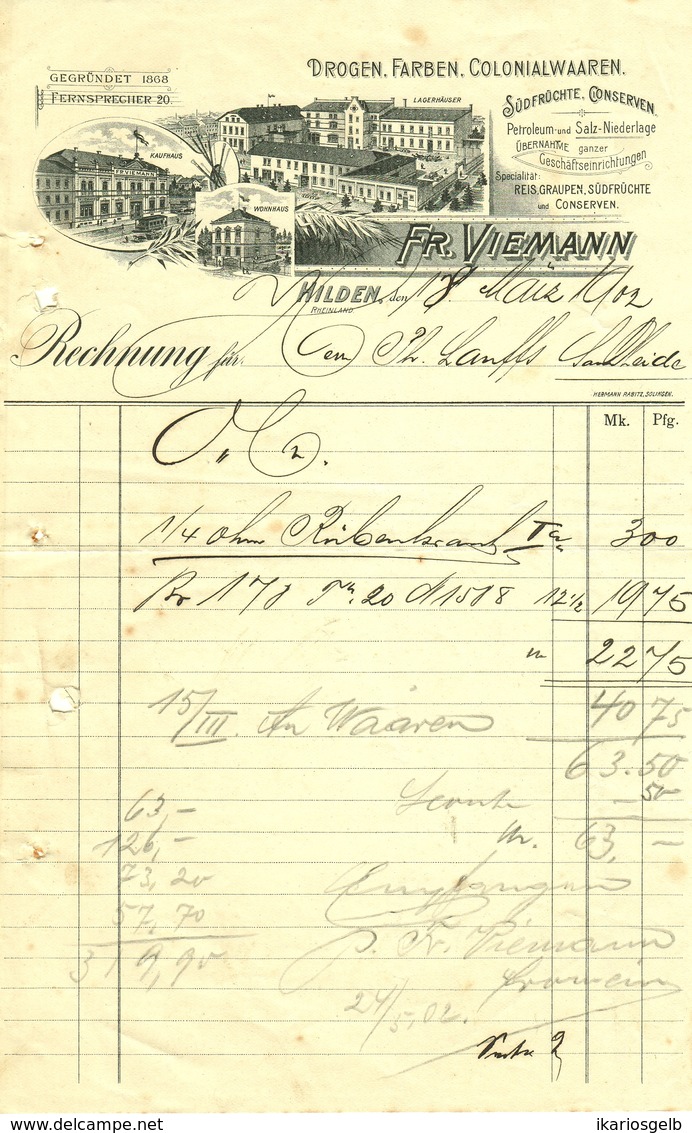 GEGRÜNDET 1868
FERNSPRECHER 20.
DROGEN, FARBEN, COLONIALWAAREN.
SÜDFRÜCHTE, CONSERVEN,
Petroleum- und Salz-Niederlage
ÜBERNAHME ganzer
Geschäftseinrichtungen
Specialität:
REIS, GRAUPEN, SÜDFRÜCHTE
und CONSERVEN.
LAGERHÄUSER
KAUFHAUS
FR. VIEMANN
WOHNHAUS
FR. VIEMANN
HILDEN, den 18. März 1902
RHEINLAND
Rechnung für Ph. Lauffs Sandheide
HERMANN RABITZ, SOLINGEN.
Mk. Pfg.
1/4 Ohm Rübenkraut Ia 300
Br 178 Tr. 20 N 158 12 1/2 1975
M 2275
15/III. An Waaren 40 75
63.50
Sconto - 50
63,-
M. 63, -
126,-
73,20
57,70
319,90
Empfangen
p. Fr. Viemann
24/5.02.
Seite 2
ikariosgelb
www.delcampe.net